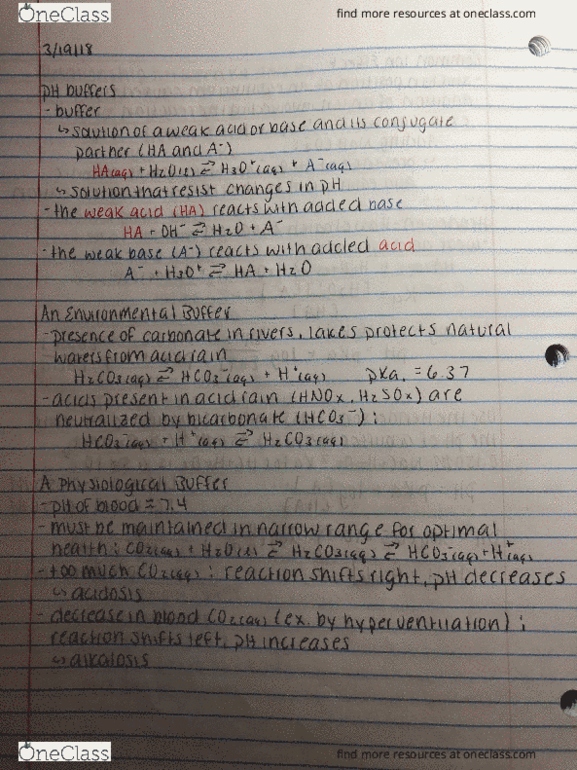 OneClass
find more resources at oneclass.com
3/19/18
pH buffers
- buffer
↳ solution of a weak acid or base and its conjugate
partner (HA and A⁻)
HA(aq) + H₂O(l) ⇌ H₃O⁺(aq) + A⁻(aq)
↳ solution that resist changes in pH
- the weak acid (HA) reacts with added base
HA + OH⁻ ⇌ H₂O + A⁻
- the weak base (A⁻) reacts with added acid
A⁻ + H₃O⁺ ⇌ HA + H₂O
An Environmental Buffer
- presence of carbonate in rivers, lakes protects natural
waters from acid rain
H₂CO₃(aq) ⇌ HCO₃⁻(aq) + H⁺(aq) pKa₁ = 6.37
- acids present in acid rain (HNOx, H₂SOx) are
neutralized by bicarbonate (HCO₃⁻):
HCO₃⁻(aq) + H⁺(aq) ⇌ H₂CO₃(aq)
A Physiological Buffer
- pH of blood = 7.4
- must be maintained in narrow range for optimal
health: CO₂(aq) + H₂O(l) ⇌ H₂CO₃(aq) ⇌ HCO₃⁻(aq) + H⁺(aq)
- too much CO₂(aq): reaction shifts right, pH decreases
↳ acidosis
- decrease in blood CO₂(aq) (ex. by hyperventilation):
reaction shifts left, pH increases
↳ alkalosis
OneClass
find more resources at oneclass.com